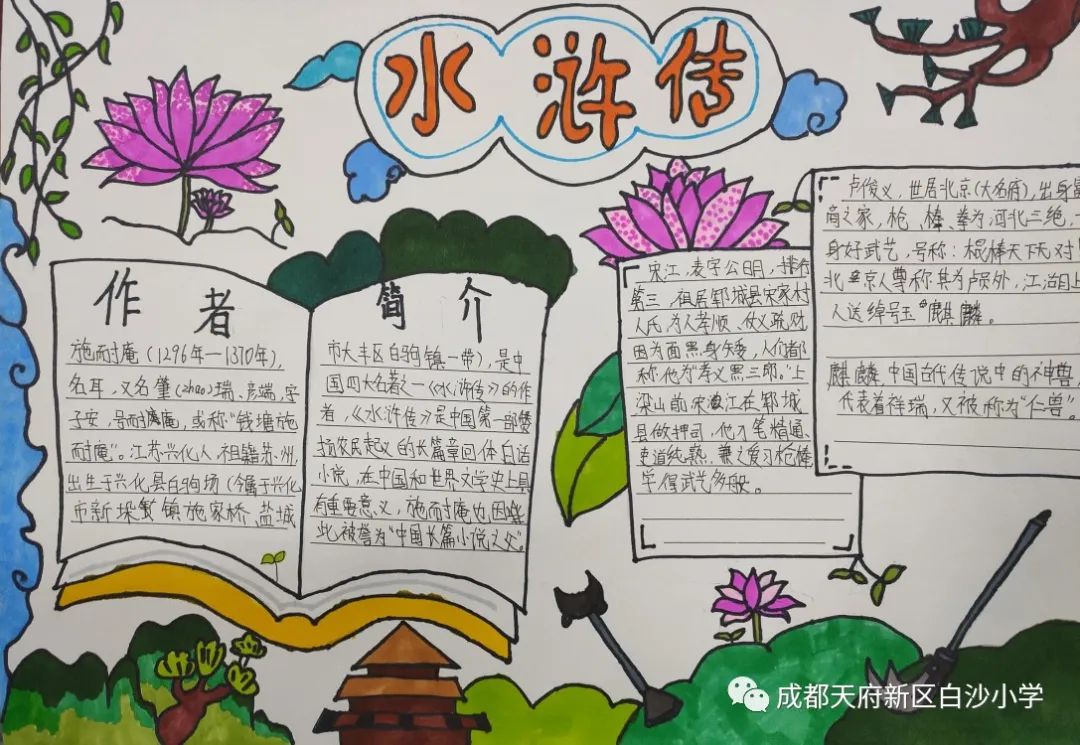 水浒传
作者
简介
施耐庵（1296年—1370年），
名耳，又名肇（zhao）瑞，彦端，字
子安，号耐庵，或称“钱塘施
耐庵”。江苏兴化人，祖籍苏州，
出生于兴化县白驹场（今属于兴化
市新垛镇施家桥，盐城
市大丰区白驹镇一带），是中
国四大名著之一《水浒传》的作
者，《水浒传》是中国第一部赞
扬农民起义的长篇章回体白话
小说，在中国和世界文学史上具
有重要意义，施耐庵也因
此被誉为“中国长篇小说之父”。
宋江，表字公明，排行
第三，祖居郓城县宋家村
人氏，为人孝顺、仗义疏财
因为面黑身矮，人们都
称他为“孝义黑三郎。”上
梁山前宋江在郓城
县做押司，他刀笔精通、
吏道纯熟，兼之爱习枪棒
学得武艺多般。
卢俊义，世居北京（大名府），出身富
商之家，枪、棒、拳为河北三绝，一
身好武艺，号称：棍棒天下无对
北京人尊称其为卢员外，江湖上
人送绰号玉麒麟。
麒麟，中国古代传说中的神兽
代表着祥瑞，又被称为“仁兽”。
成都天府新区白沙小学